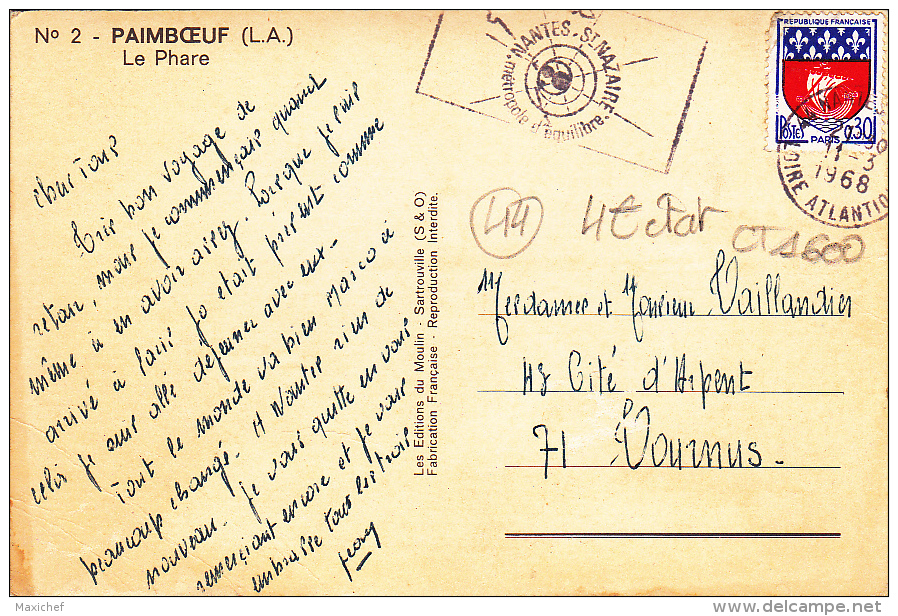 Nº 2 - PAIMBŒUF (L.A.)
Le Phare
NANTES - ST NAZAIRE
métropole d'équilibre
REPUBLIQUE FRANÇAISE
POSTES 0,30
PARIS
11-3
1968
LOIRE ATLANTIQUE
44
4€ etat
CTS600
cher Tous
Très bon voyage de
retour, mais je commençais quand
même à en avoir assez. Lorsque je suis
arrivé à Paris Jo était présent comme
celà je suis allé déjeuner avec eux -
Tout le monde va bien Marco a
beaucoup changé. A Nantes rien de
nouveau. Je vous quitte en vous
remerçiant encore et je vous
embrasse tous les trois
Les Editions du Moulin - Sartrouville (S & O)
Fabrication Française - Reproduction Interdite.
Mesdames et Monsieur Vaillandier
48 Cité d'Arpent
71 Tournus -
Maxichef
www.delcampe.net